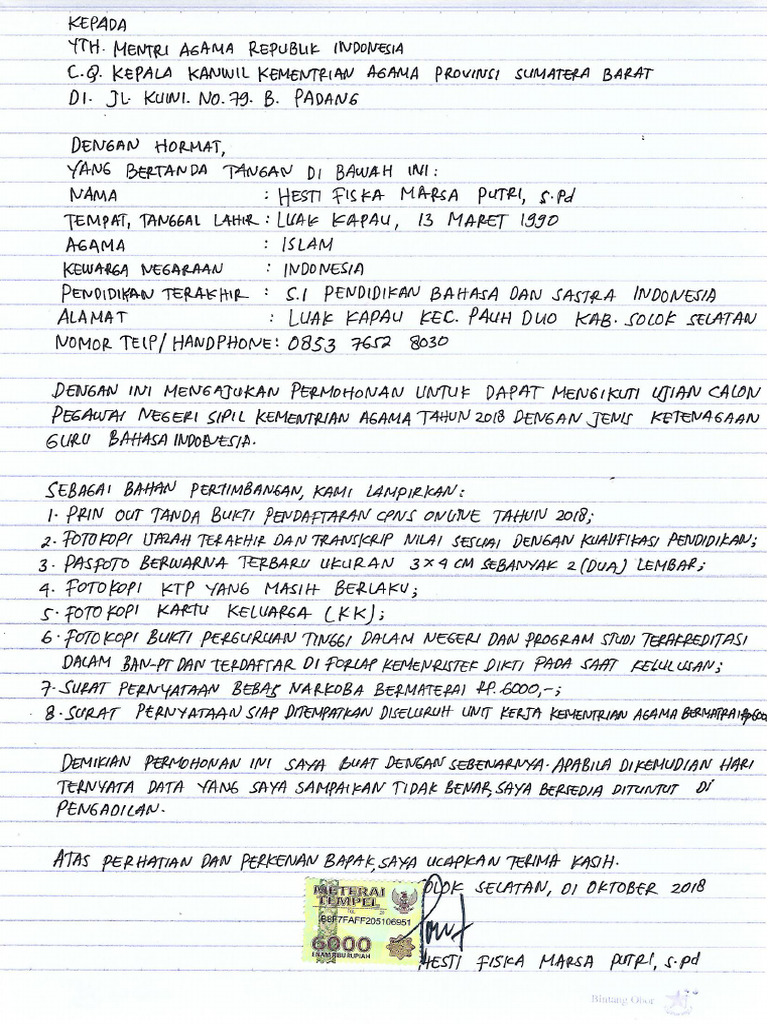 KEPADA
YTH. MENTRI AGAMA REPUBLIK INDONESIA
C.Q. KEPALA KANWIL KEMENTRIAN AGAMA PROVINSI SUMATERA BARAT
DI. JL. KUINI. NO. 79. B. PADANG
DENGAN HORMAT,
YANG BERTANDA TANGAN DI BAWAH INI :
NAMA : HESTI FISKA MARSA PUTRI, S.Pd
TEMPAT, TANGGAL LAHIR : LUAK KAPAU, 13 MARET 1990
AGAMA : ISLAM
KEWARGA NEGARAAN : INDONESIA
PENDIDIKAN TERAKHIR : S.1 PENDIDIKAN BAHASA DAN SASTRA INDONESIA
ALAMAT : LUAK KAPAU KEC. PAUH DUO KAB. SOLOK SELATAN
NOMOR TELP/HANDPHONE : 0853 7652 8030
DENGAN INI MENGAJUKAN PERMOHONAN UNTUK DAPAT MENGIKUTI UJIAN CALON
PEGAWAI NEGERI SIPIL KEMENTRIAN AGAMA TAHUN 2018 DENGAN JENIS KETENAGAAN
GURU BAHASA INDONESIA.
SEBAGAI BAHAN PERTIMBANGAN, KAMI LAMPIRKAN :
1. PRIN OUT TANDA BUKTI PENDAFTARAN CPNS ONLINE TAHUN 2018;
2. FOTOKOPI IJAZAH TERAKHIR DAN TRANSKRIP NILAI SESUAI DENGAN KUALIFIKASI PENDIDIKAN;
3. PASFOTO BERWARNA TERBARU UKURAN 3×4 CM SEBANYAK 2 (DUA) LEMBAR;
4. FOTOKOPI KTP YANG MASIH BERLAKU;
5. FOTOKOPI KARTU KELUARGA (KK);
6. FOTOKOPI BUKTI PERGURUAN TINGGI DALAM NEGERI DAN PROGRAM STUDI TERAKREDITASI
DALAM BAN-PT DAN TERDAFTAR DI FORLAP KEMENRISTEK DIKTI PADA SAAT KELULUSAN;
7. SURAT PERNYATAAN BEBAS NARKOBA BERMATERAI RP. 6000,-;
8. SURAT PERNYATAAN SIAP DITEMPATKAN DISELURUH UNIT KERJA KEMENTRIAN AGAMA BERMATRAI Rp 6000
DEMIKIAN PERMOHONAN INI SAYA BUAT DENGAN SEBENARNYA. APABILA DIKEMUDIAN HARI
TERNYATA DATA YANG SAYA SAMPAIKAN TIDAK BENAR, SAYA BERSEDIA DITUNTUT DI
PENGADILAN.
ATAS PERHATIAN DAN PERKENAN BAPAK, SAYA UCAPKAN TERIMA KASIH.
OLOK SELATAN, 01 OKTOBER 2018
METERAI
TEMPEL
B8F7FAFF205106951
6000
ENAM RIBU RUPIAH
HESTI FISKA MARSA PUTRI, S.Pd
Bintang Obor